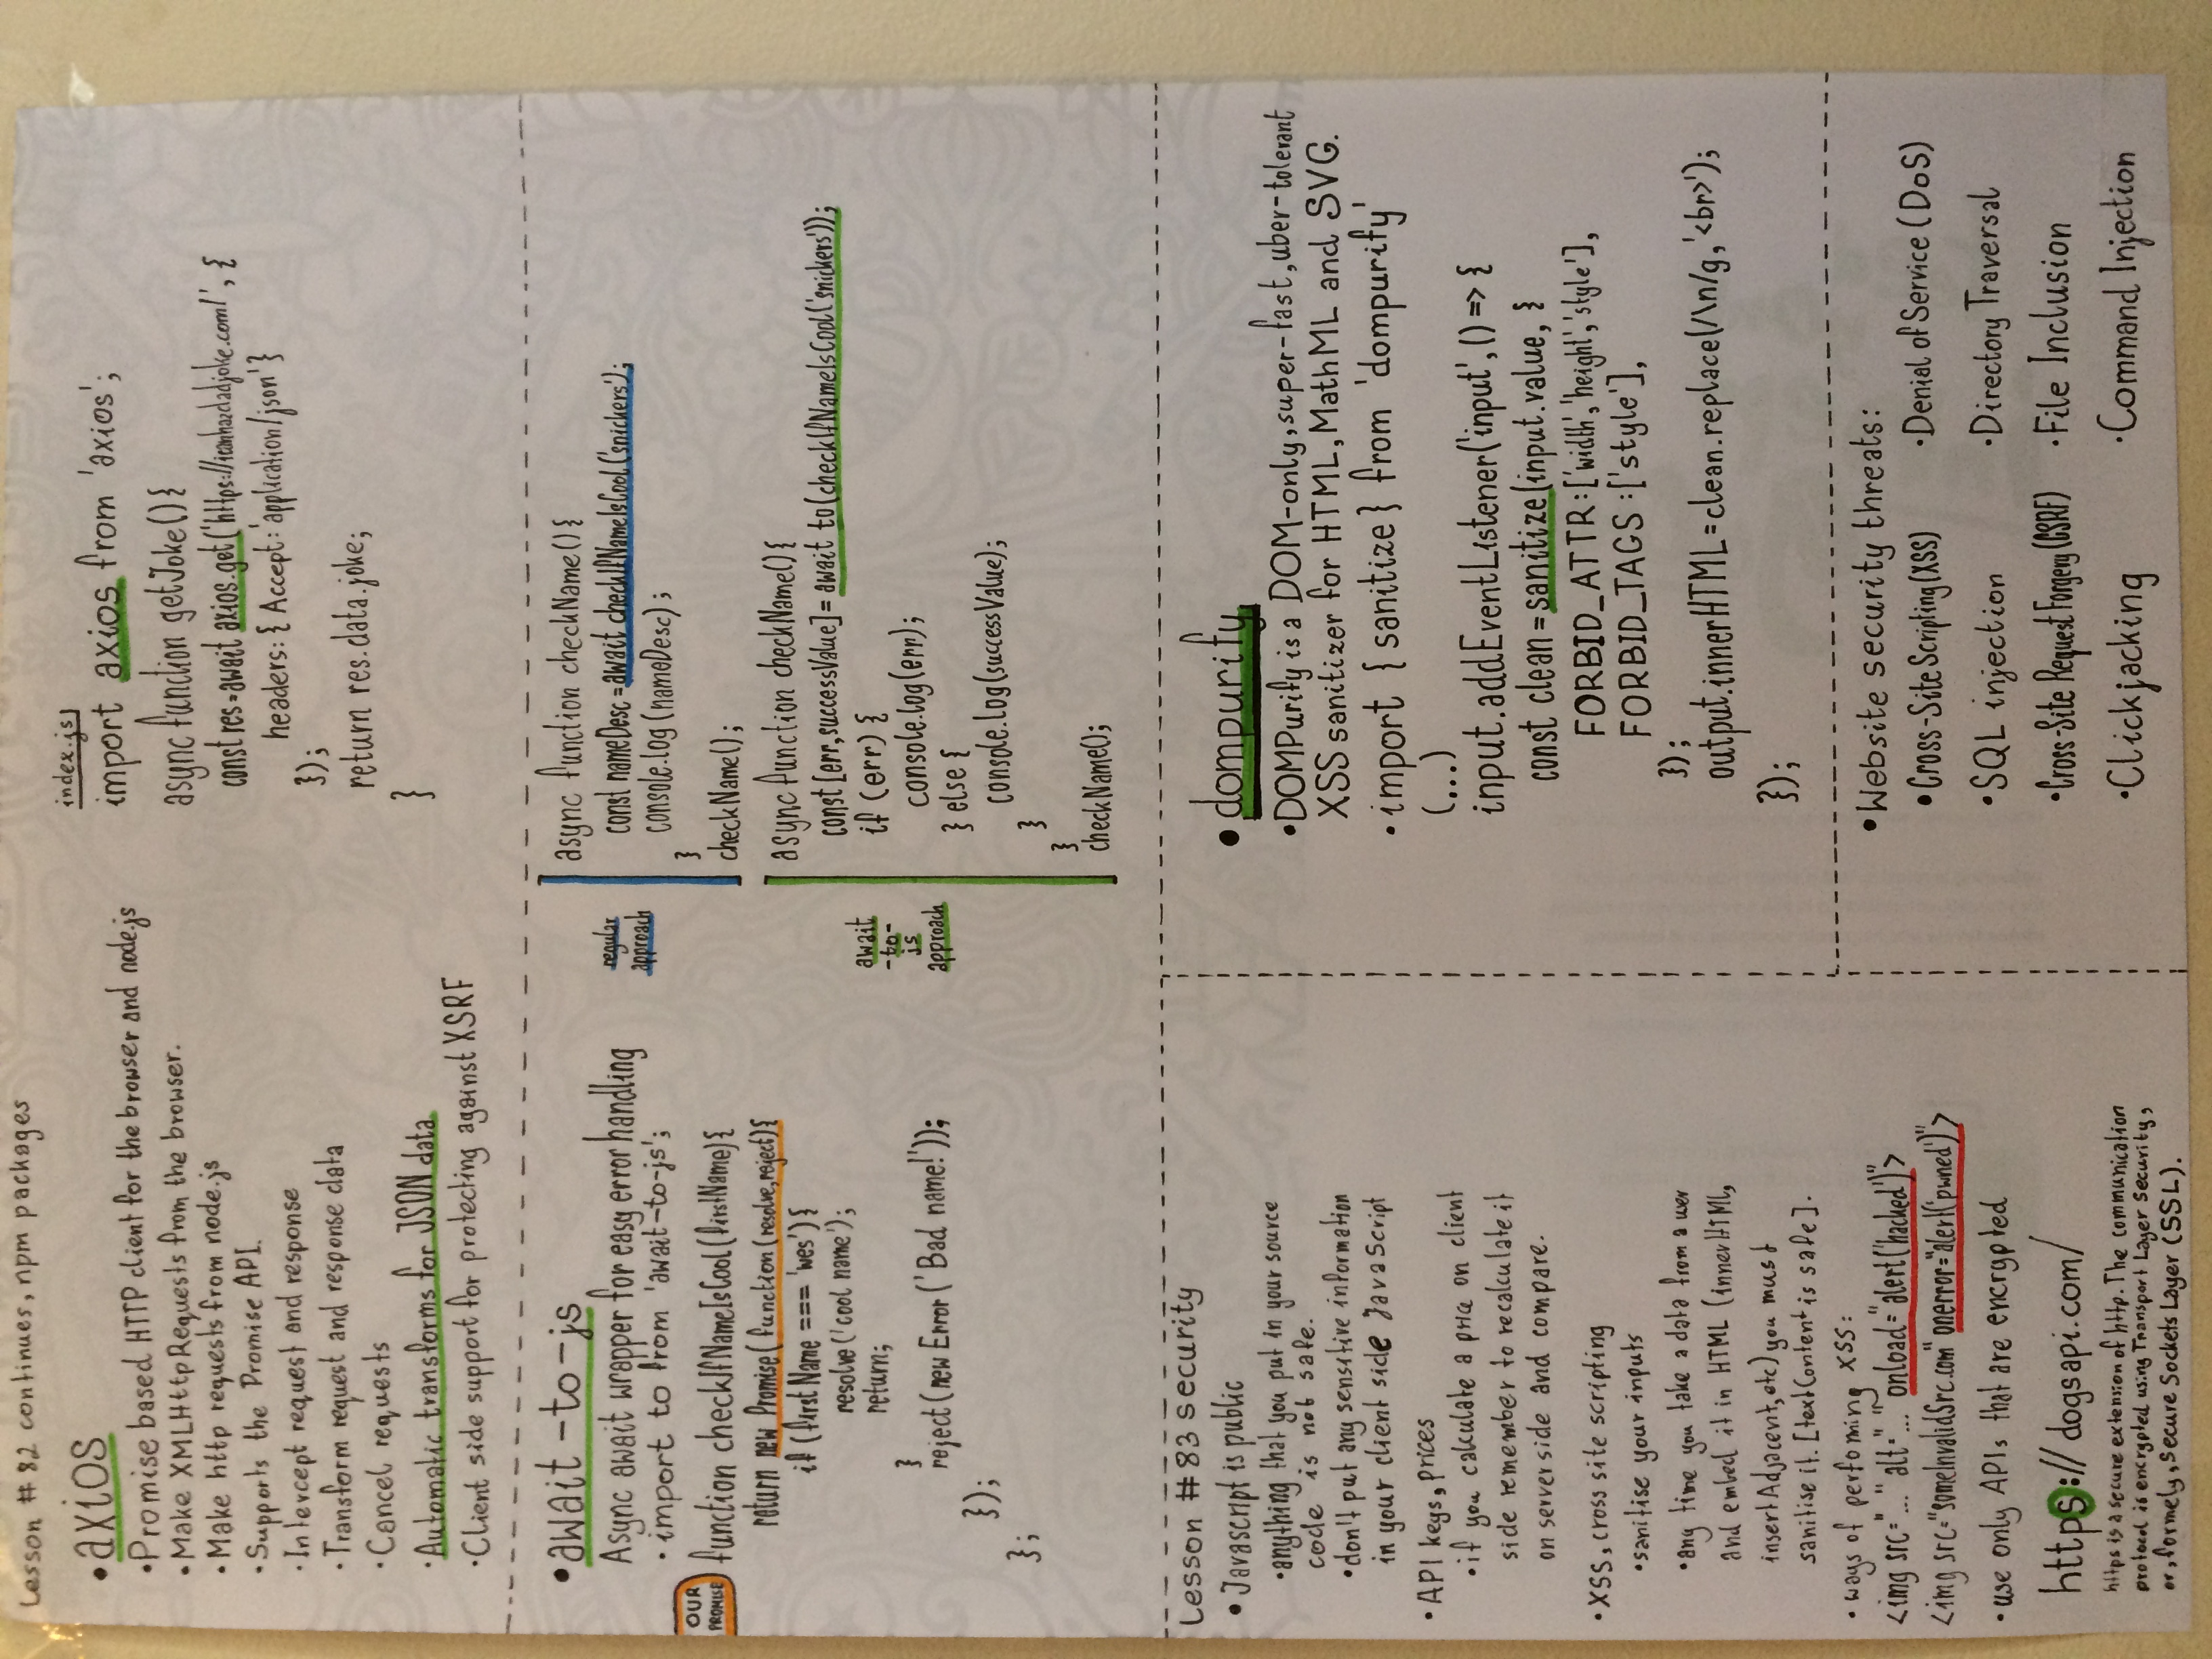 Lesson # 82 continues, npm packages
• axios
• Promise based HTTP client for the browser and node.js
• Make XMLHttpRequests from the browser.
• Make http requests from node.js
• Supports the Promise API.
• Intercept request and response
• Transform request and response data
• Cancel requests
• Automatic transforms for JSON data
• Client side support for protecting against XSRF
index.js
import axios from 'axios';
async function getJoke(){
const res=await axios.get('https://icanhazdadjoke.com/', {
headers: { Accept: 'application/json' }
});
return res.data.joke;
}
• await-to-js
Async await wrapper for easy error handling
• import to from 'await-to-js';
OUR
PROMISE
function checkIfNameIsCool(firstName){
return new Promise( function (resolve,reject){
if (firstName === 'wes'){
resolve('cool name');
return;
}
reject(new Error('Bad name!'));
});
};
regular
approach
async function checkName(){
const nameDesc = await checkIfNameIsCool('snickers');
console.log(nameDesc);
}
checkName();
await
-to-
js
approach
async function checkName(){
const [err,successValue]= await to(checkIfNameIsCool('snickers'));
if (err) {
console.log(err);
} else {
console.log(successValue);
}
}
checkName();
Lesson # 83 security
• Javascript is public
• anything that you put in your source
code is not safe.
• don't put any sensitive information
in your client side JavaScript
• API keys, prices
• if you calculate a price on client
side remember to recalculate it
on server side and compare.
• XSS, cross site scripting
• sanitise your inputs
• any time you take a data from a user
and embed it in HTML (innerHTML,
insertAdjacent, etc) you must
sanitise it. [textContent is safe].
• ways of perfoming XSS:
<img src="..." alt="..." onload="alert('hacked')">
<img src="someInvalidSrc.com" onerror="alert('pwned')">
• use only APIs that are encrypted
https://dogsapi.com/
https is a secure extension of http. The communication
protocol is encrypted using Transport Layer Security,
or, formely, Secure Sockets Layer (SSL).
• dompurify
• DOMPurify is a DOM-only, super-fast, uber-tolerant
XSS sanitizer for HTML, MathML and SVG.
• import { sanitize } from 'dompurify'
(...)
input.addEventListener('input', () => {
const clean = sanitize(input.value, {
FORBID_ATTR: ['width', 'height', 'style'],
FORBID_TAGS : ['style'],
});
output.innerHTML = clean.replace(/\n/g, '<br>');
});
• Website security threats:
• Cross-Site Scripting (XSS)
• SQL injection
• Cross-Site Request Forgery (CSRF)
• Clickjacking
• Denial of Service (DoS)
• Directory Traversal
• File Inclusion
• Command Injection